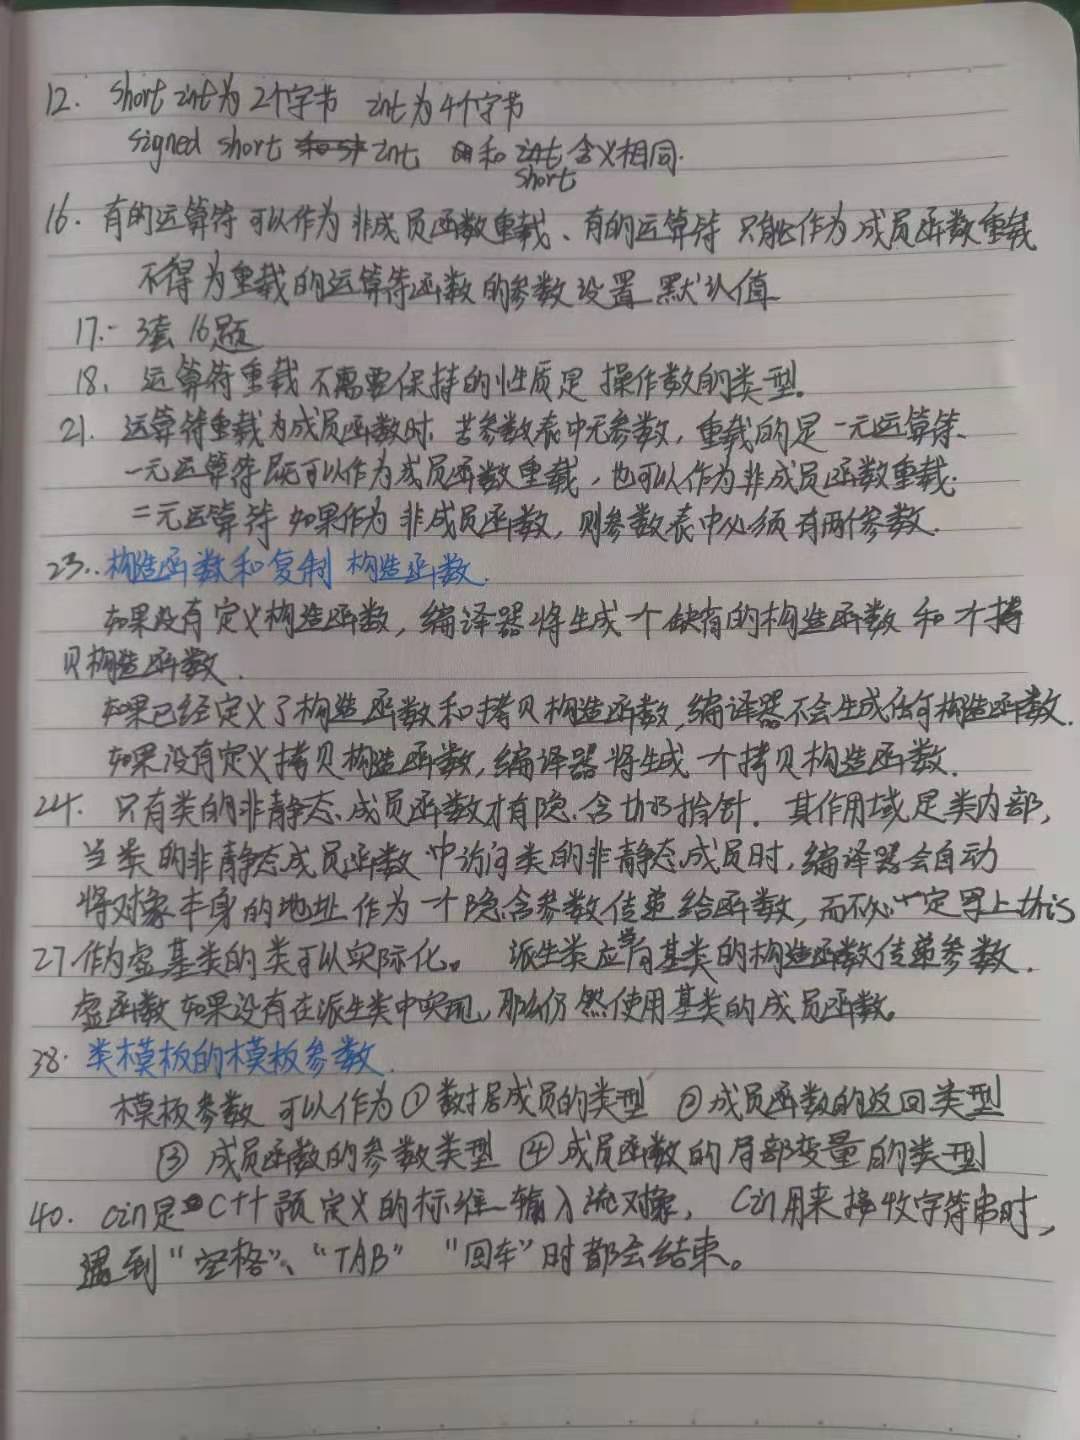 12. short int为2个字节 int为4个字节
signed short int 和 int 含义相同.
short
16. 有的运算符可以作为非成员函数重载、有的运算符只能作为成员函数重载
不得为重载的运算符函数的参数设置默认值
17. 3套16题
18. 运算符重载不需要保持的性质是操作数的类型。
21. 运算符重载为成员函数时,若参数表中无参数,重载的是一元运算符.
一元运算符既可以作为成员函数重载,也可以作为非成员函数重载.
二元运算符如果作为非成员函数,则参数表中必须有两个参数.
23..构造函数和复制构造函数.
如果没有定义构造函数,编译器将生成一个缺省的构造函数和一个拷
贝构造函数.
如果已经定义了构造函数和拷贝构造函数,编译器不会生成任何构造函数.
如果没有定义拷贝构造函数,编译器将生成一个拷贝构造函数.
24. 只有类的非静态成员函数才有隐含this指针. 其作用域是类内部,
当类的非静态成员函数中访问类的非静态成员时,编译器会自动
将对象本身的地址作为一个隐含参数传递给函数,而不必一定写上this
27.作为虚基类的类可以实际化。 派生类应当向基类的构造函数传递参数.
虚函数如果没有在派生类中实现,那么仍然使用基类的成员函数。
38. 类模板的模板参数.
模板参数可以作为①数据成员的类型 ②成员函数的返回类型
③成员函数的参数类型 ④成员函数的局部变量的类型
40. cin是C++预定义的标准输入流对象, cin用来接收字符串时,
遇到“空格”、“TAB”“回车”时都会结束。